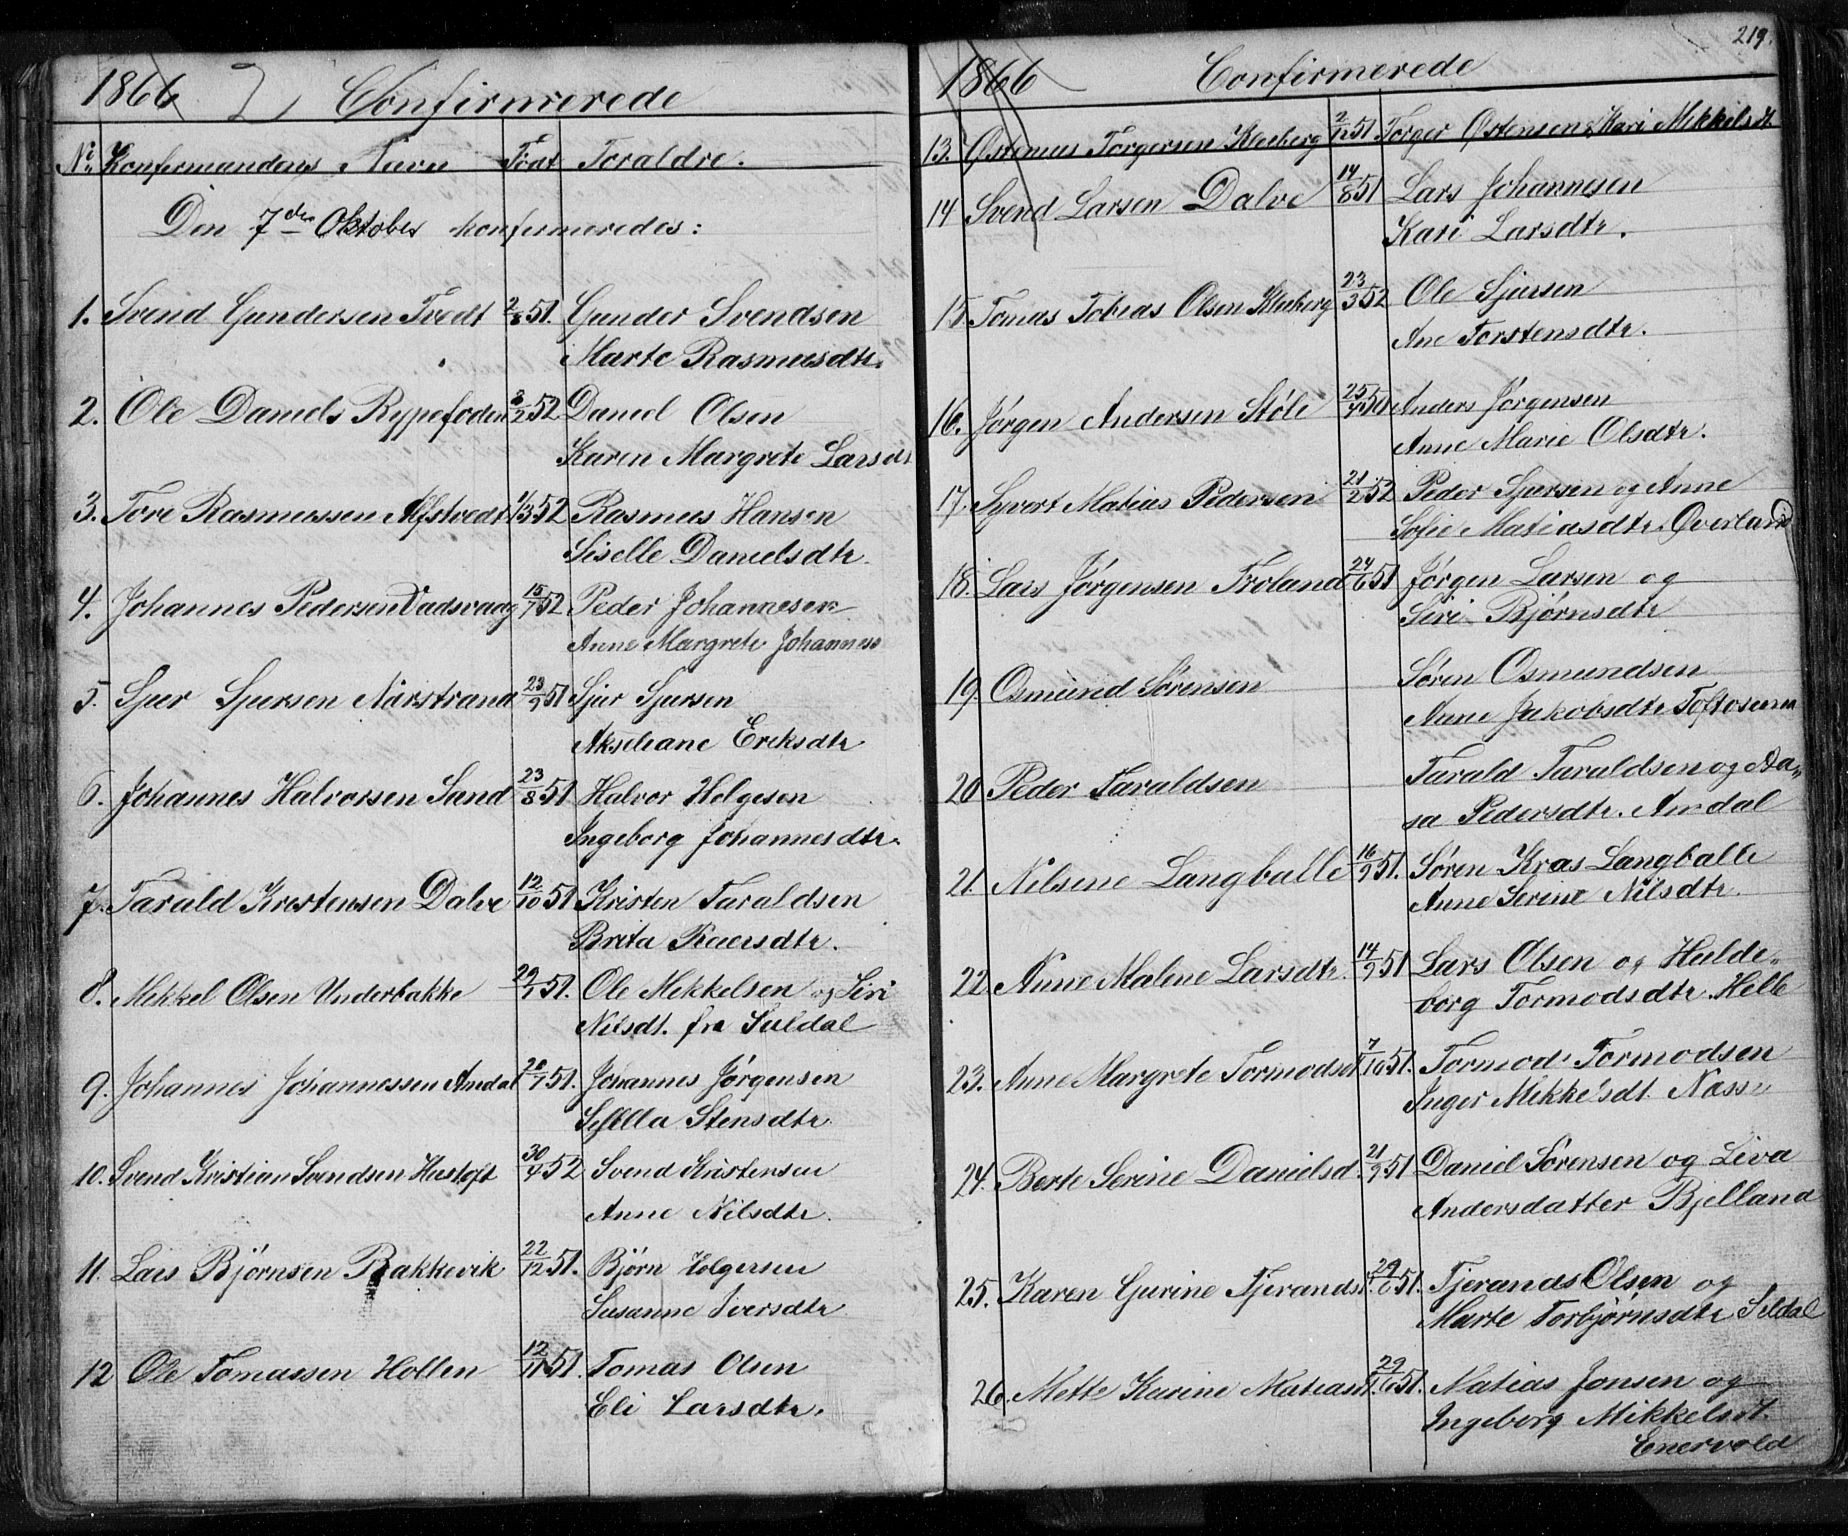 1866 Confirmerede
No Konfirmandens Navn Født Foraldre.
Den 7de Oktober konfirmeredes:
1. Svend Gundersen Tvedt 2/8 51. Gunder Svendsen
Marte Rasmusdtr.
2. Ole Daniels Rypefoden 2/2 52 Daniel Olsen
Karen Margrete Larsdt
3. Tore Rasmussen Afstvedt 52 Rasmus Hansen
Siselle Danielsdtr.
4. Johannes Pedersen Vadsvaag 15/7 52. Peder Johannesen
Anne Margrete Johanness
5. Sjur Sjursen Narstrand 23/9 51 Sjur Sjursen
Akseliane Eriksdtr
6. Johannes Halvorsen Sand 23/8 51 Halvor Helgesen
Ingeborg Johannesdtr.
7. Tarald Kristensen Dalve 12/10 51 Kristen Taraldsen
Brita Kaarsdtr.
8. Mikkel Olsen Underbakke 29/7 51. Ole Mikkelsen og Siri
Nilsdt. fra Suldal
9. Johannes Johannessen Amdal 28/7 51. Johannes Jørgensen
Stensdtr.
10. Svend Kristian Svendsen Hustoft 30/4 52 Svend Kristensen
Anne Nilsdtr.
11. Lars Bjørnsen Bakkevik 22/12 51. Bjørn Helgersen
Susanne Iversdtr
12 Ole Tomassen Hollen 12/11 51. Tomas Olsen
Eli Larsdtr.
219.
1866 Confirmerede
13. Østenus Torgersen Kleiberg 2/12 51 Torger Østensen Kari Mikkelsdt
14 Svend Larsen Dalve 14/8 51 Lars Johannesen
Kari Larsdtr.
15. Tomas Tobias Olsen Kleiberg 23/3 52 Ole Sjursen
Ane Torstensdtr.
16. Jørgen Andersen Støle 25/4 50 Anders Jørgensen
Anne Marie Olsdtr.
17. Syvert Matias Pedersen 21/2 52 Peder Sjursen og Anne
Sofie Matiasdtr. Øverland
18. Lars Jørgensen Froland 24/6 51 Jørgen Larsen og
Siri Bjørnsdtr
19. Osmund Sørensen Søren Osmundsen
Anne Jakobsdtr. Toftosen
20 Peder Taraldsen Tarald Taraldsen og Aa-
sa Pedersdtr. Amdal
21. Nilsine Langballe 16/9 51. Søren Kras Langballe
Anne Serine Nilsdtr.
22. Anne Malene Larsdtr. 14/9 51 Lars Olsen og Hulde-
borg Tormodsdtr. Helle
23. Anne Margrete Tormodsdt 7/10 51. Tormod Tormodsen
Inger Mikkelsdt. Næsse
24. Berte Serine Danielsd. 21/9 51 Daniel Sørensen og Liva
Andersdatter Bjelland
25. Karen Gurine Tjerandst. 29/6 51. Tjerands Olsen og
Marte Torbjørnsdtr Seldal
26. Mette Karine Matiasdt. 29/6 51. Matias Jonsen og
Ingeborg Mikkelsdt.
Enervold